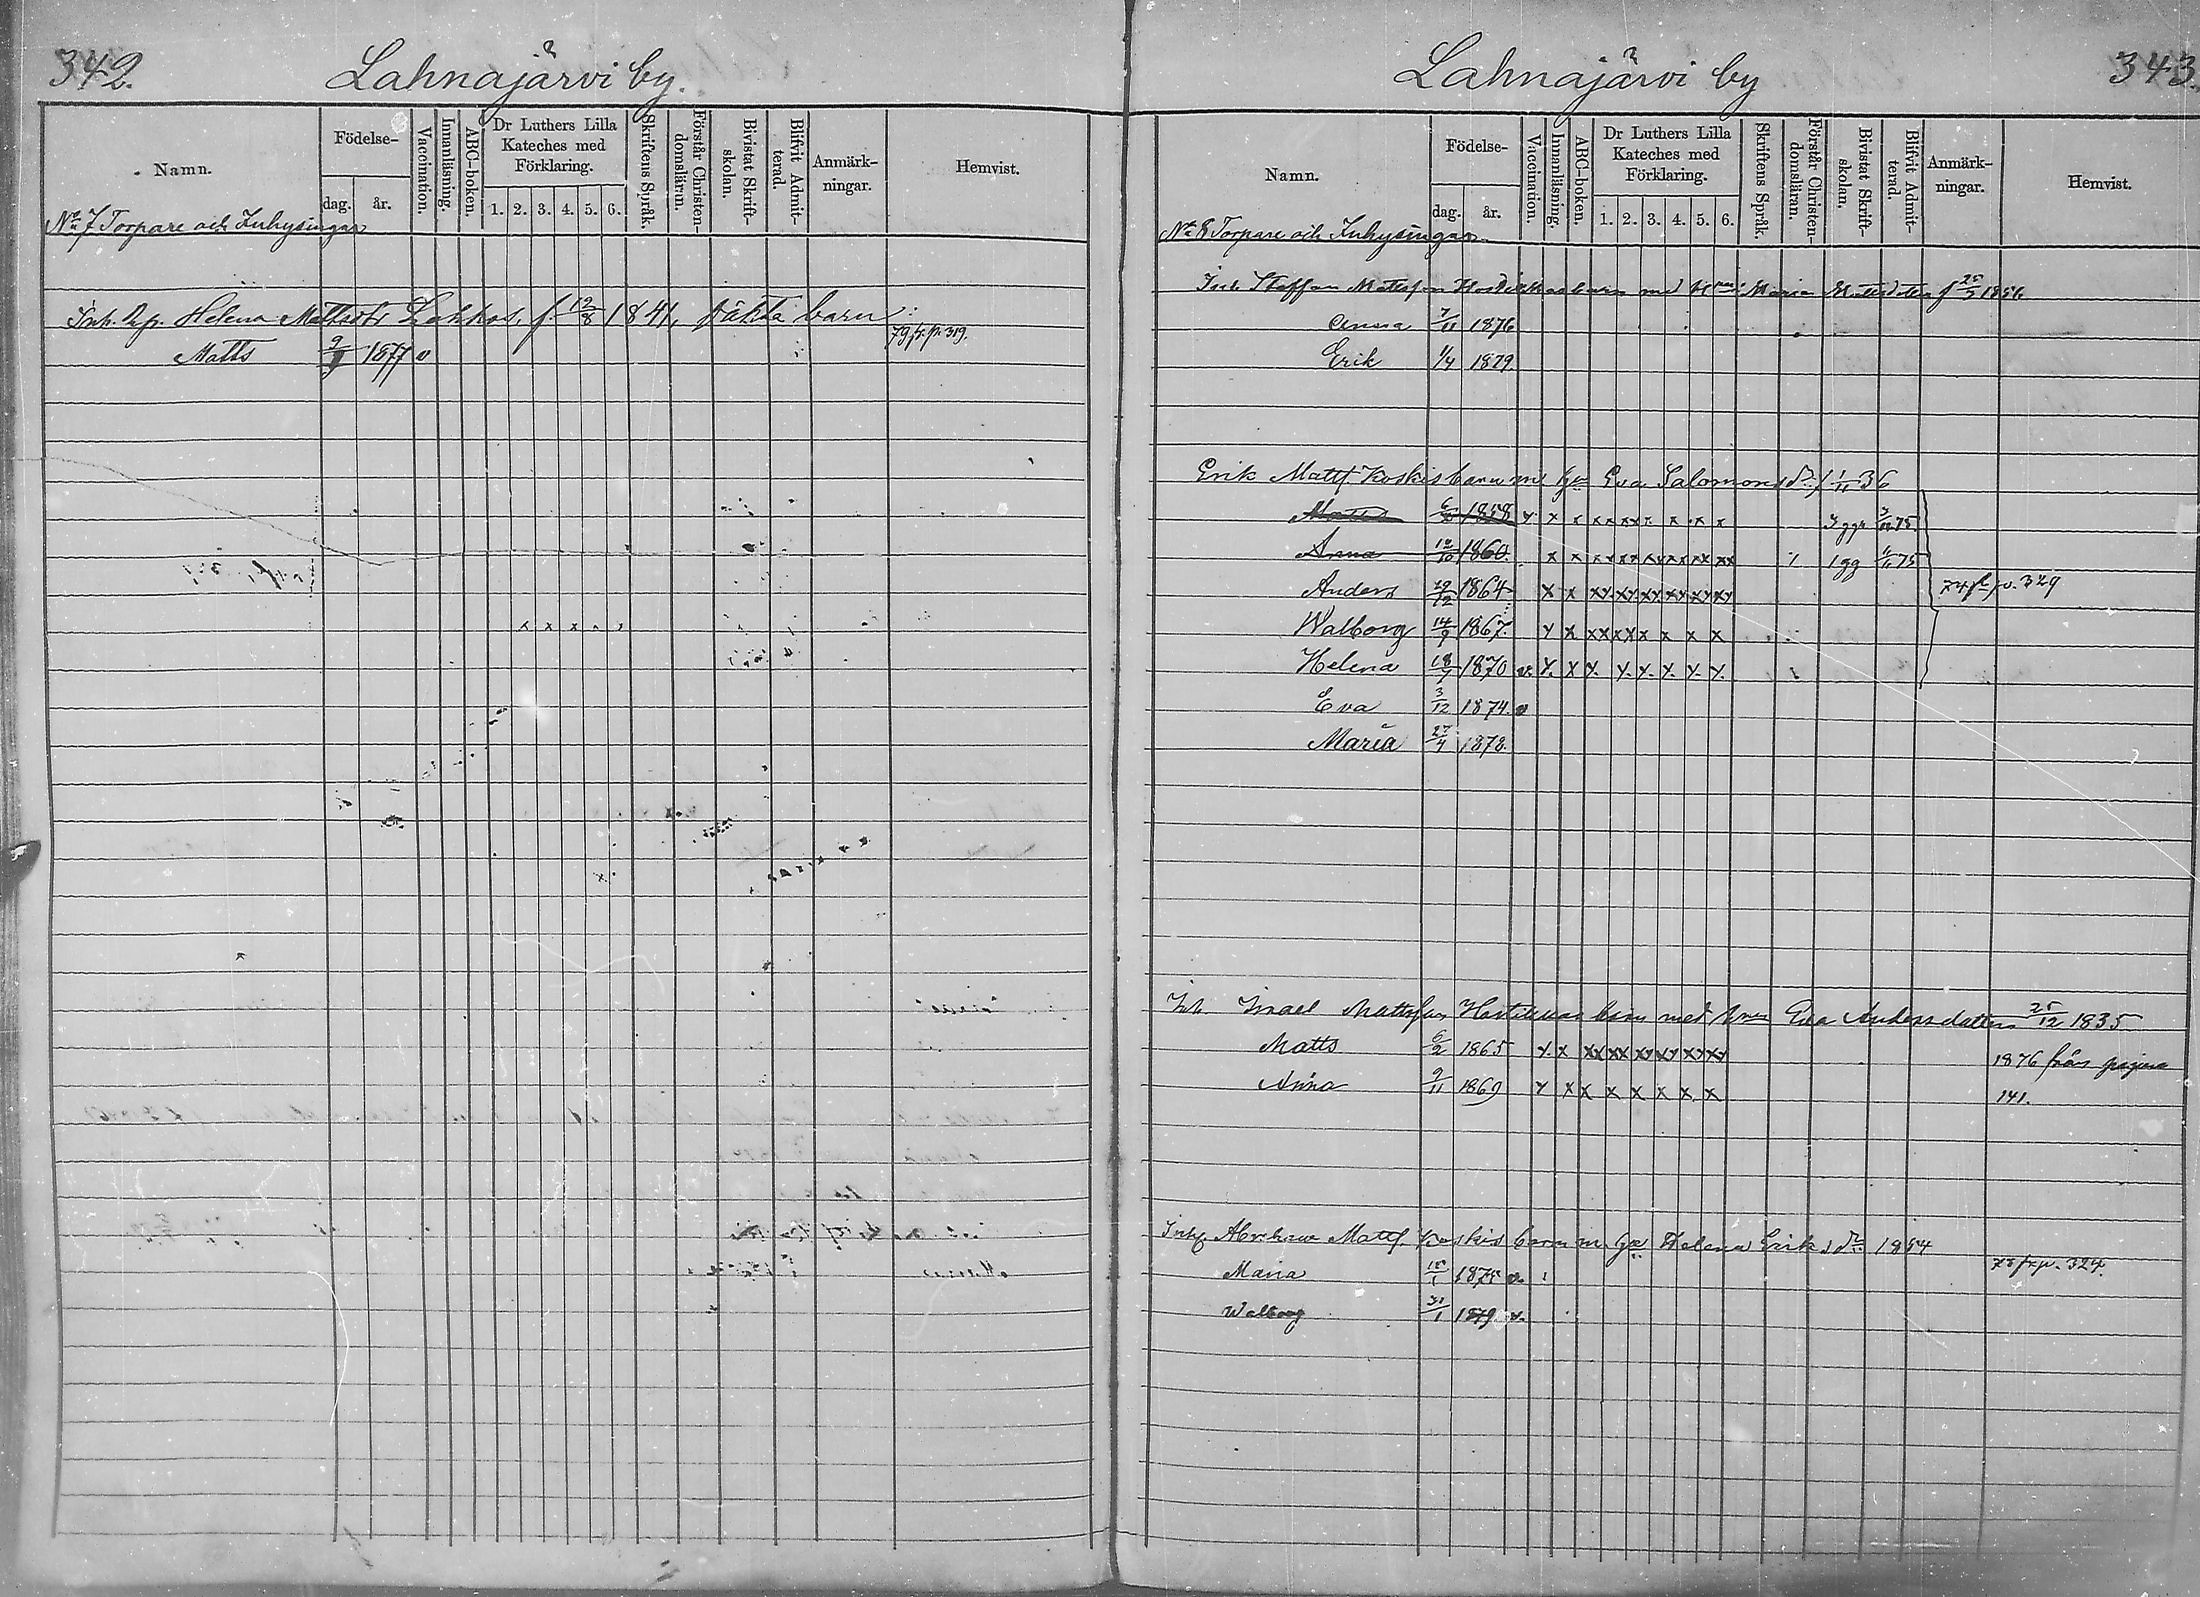 342.
Lahnajärvi by.
Namn.
Födelse-
dag. år.
Vaccination.
Innanläsning.
ABC-boken.
Dr Luthers Lilla Kateches med Förklaring.
1. 2. 3. 4. 5. 6.
Skriftens Språk.
Förstår Christendomslärin.
Bivistat Skriftskolan.
Blifvit Admitterad.
Anmärkningar.
Hemvist.
No 7 Torpare och Inhysingar
Helena Mattsdr Lakkos, f. 12/8 1841, oäkta barn:
79 fr. p. 319.
Matts 1877 v
Lahnajärvi by
343.
Namn.
Födelse-
dag. år.
Vaccination.
Innanläsning.
ABC-boken.
Dr Luthers Lilla Kateches med Förklaring.
1. 2. 3. 4. 5. 6.
Skriftens Språk.
Förstår Christendomsläran.
Bivistat Skriftskolan.
Blifvit Admitterad.
Anmärkningar.
Hemvist.
No 8 Torpare och Inhysingar
Inh. Staffan Mattsson barn med Maria f 25/5 1856
Anna 7/11 1876
Erik 1/4 1879.
Erik Matts Koskis barn m Eva Salomonsdr f 1/11 36
Matts 1858 v x x x x x x x x 3 ggr 75
Anna 12/10 1860. x x x x x x x x x x x x x 1 gg 75
Anders 29/12 1864 x x xx xx xx xx xx xx 74 fr p. 329
Walborg 14/9 1867. x x xx x x x x x x
Helena 18/7 1870 v. x. x x. x. x. x. x. x.
Eva 3/12 1874. v
Maria 27/4 1878.
Inh. Israel Mattsson barn med Eva Andersdotter 25/12 1835
Matts 6/2 1865 x x xx xx xx xx xx xx 1876 från pagina
Anna 9/11 1869 x x x x x x x x 141.
Matts. Koskis barn m. Helena Eriksdr 1854
Maria 1875 v. p. 324.
Walborg 31/1 1879. v.